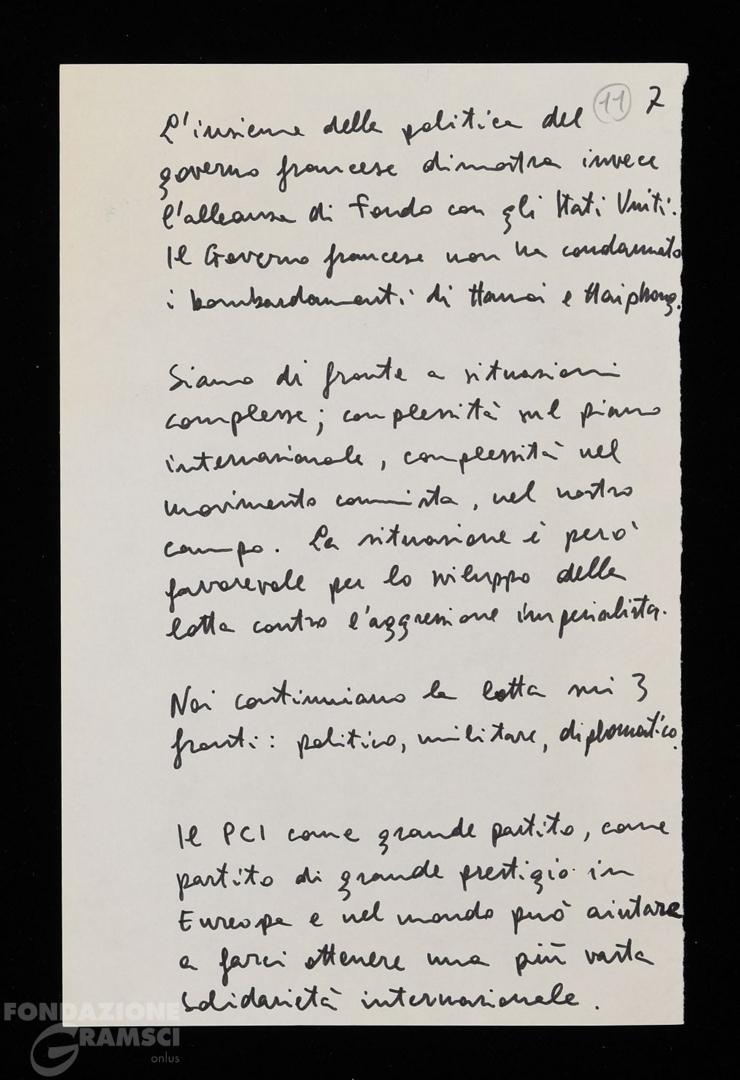 11 7
L'insieme della politica del
governo francese dimostra invece
l'alleanza di fondo con gli Stati Uniti.
Il Governo francese non ha condannato
i bombardamenti di Hanoi e Haiphong.
Siamo di fronte a situazioni
complesse; complessità sul piano
internazionale, complessità nel
movimento comunista, nel nostro
campo. La situazione è però
favorevole per lo sviluppo della
lotta contro l'aggressione imperialista.
Noi continuiamo la lotta sui 3
fronti: politico, militare, diplomatico.
Il PCI come grande partito, come
partito di grande prestigio in
Europa e nel mondo può aiutare
a farci ottenere una più vasta
solidarietà internazionale.
FONDAZIONE
GRAMSCI
onlus